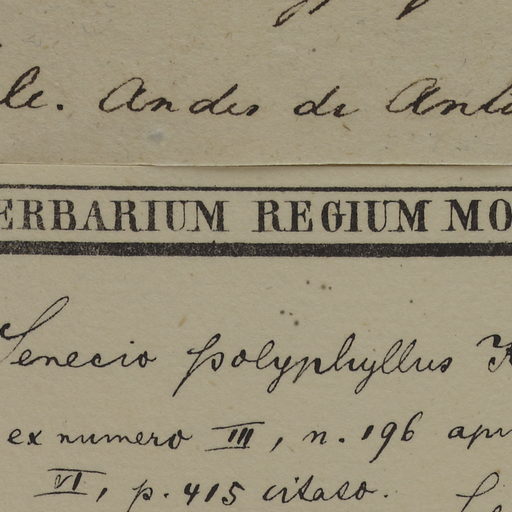 le. Andes de Anto
ERBARIUM REGIUM MO
Senecio polyphyllus K
ex numero III, n. 196 apu
VI, p. 415 citato.